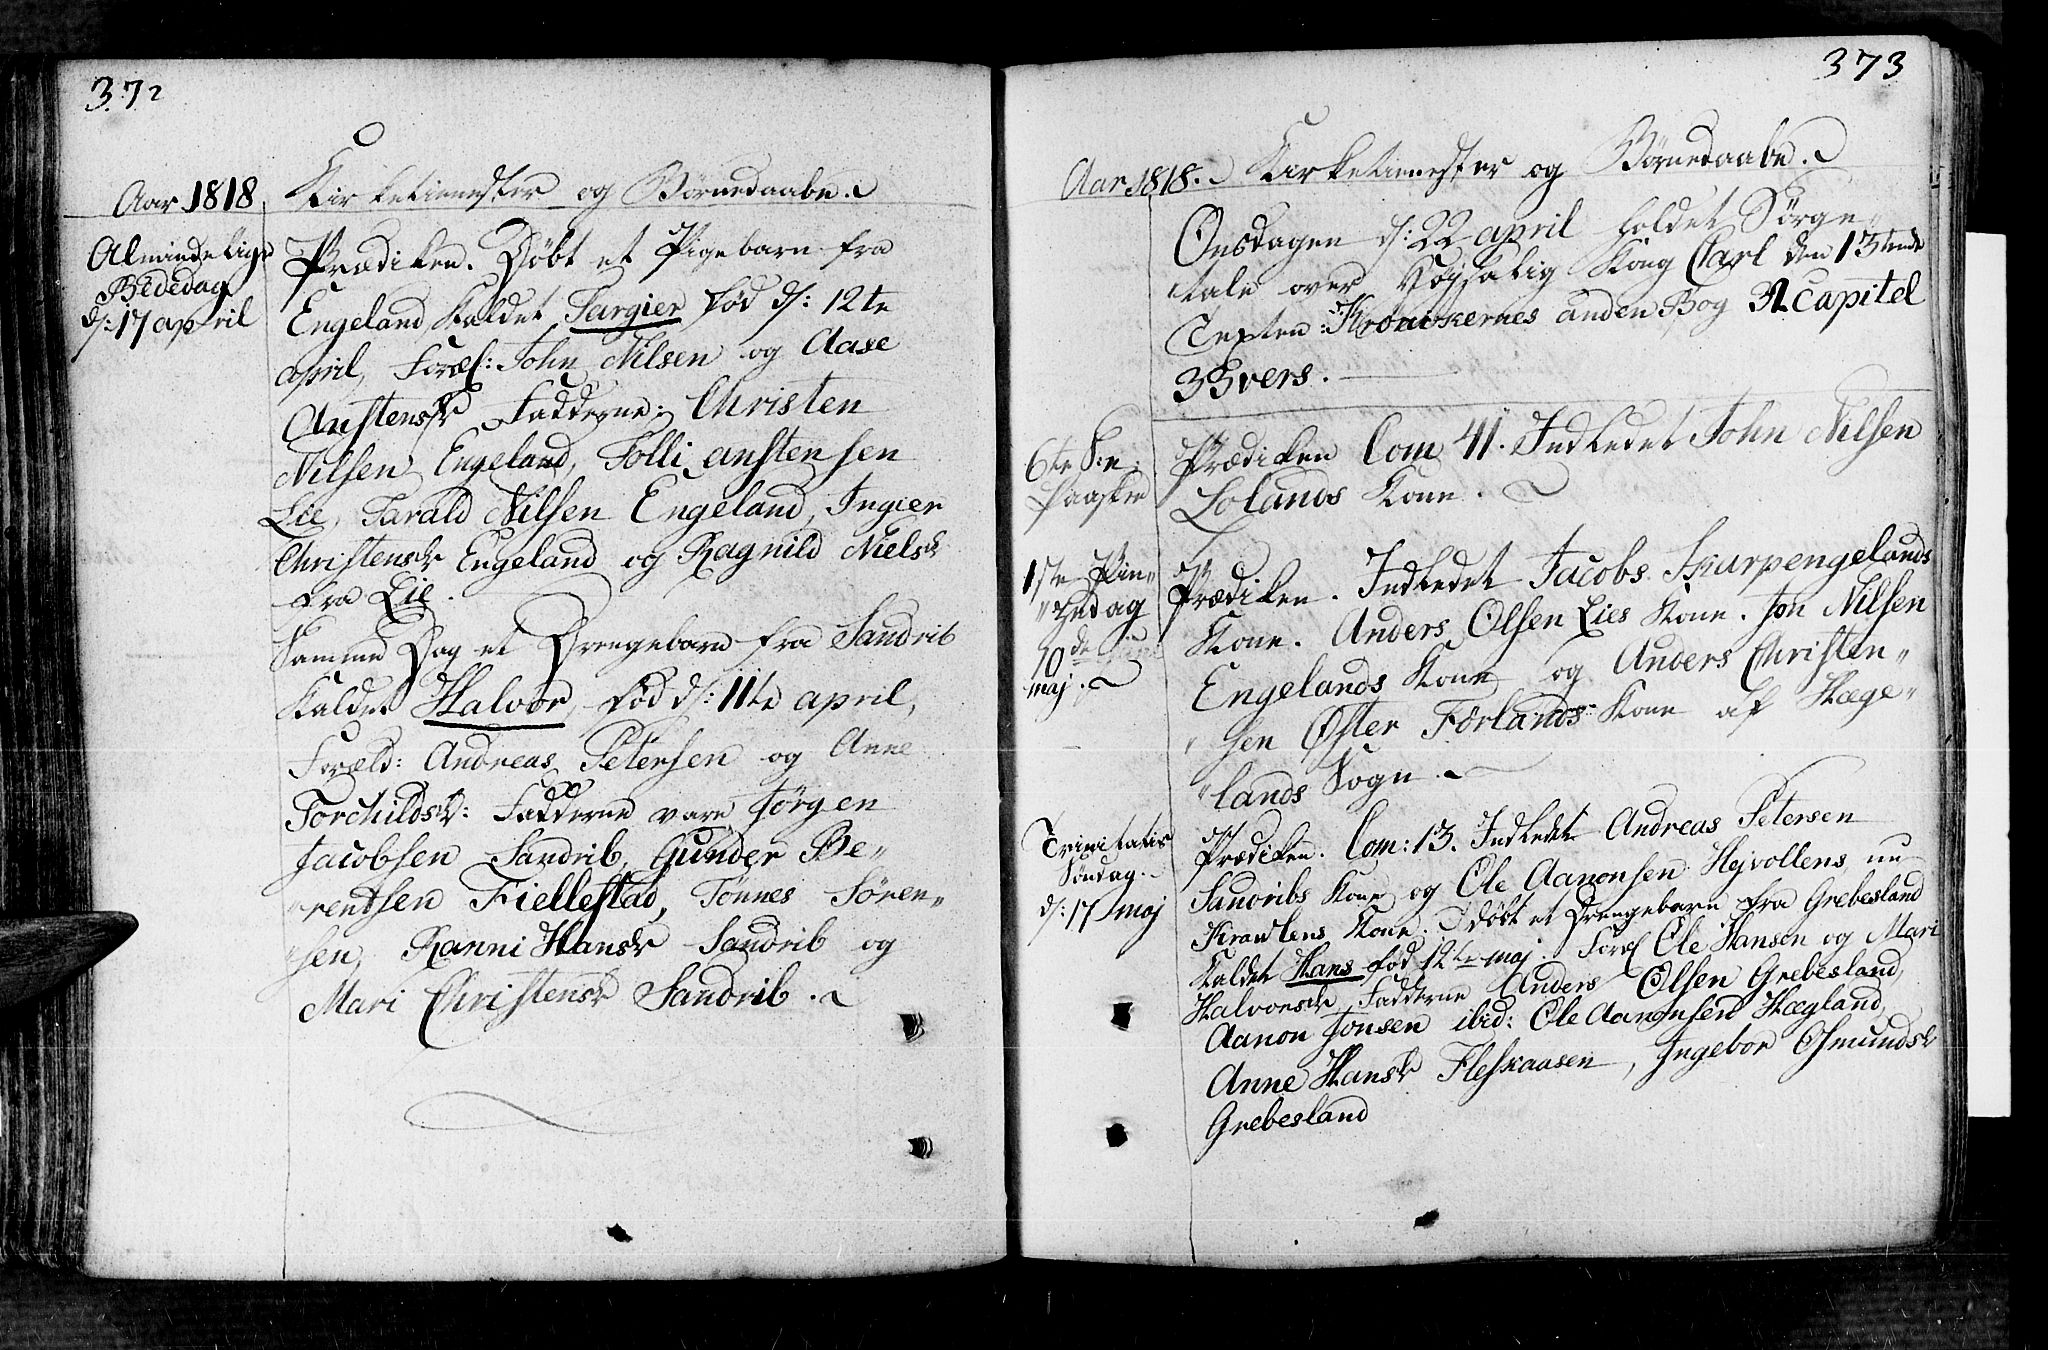 372
Aar 1818
Kirketienester og Börnedaabe.
Almindelige
Bededag
d: 17 april
Prædiken. Döbt et Pigebarn fra
Engeland kaldet Targier fød d: 12te
april, Foræl: John Nilsen og Aase
Anstensdr Fadderne: Christen
Nilsen Engeland, Tolli anstensen
Lie, Tarald Nilsen Engeland, Ingier
Christensdr Engeland og Ragnild Nielsdr
fra Lie.
Samme Dag et Drengebarn fra Sandrib
Kaldet Halvor, fød d: 11te april,
Foræld: Andreas Petersen og Anne
Torchildsdr: Fadderne vare Jörgen
Jacobsen Sandrib, Gunder Be„
„rentsen Fiellestad, Tönnes Sören„
„sen, Ranni Hansdr Sandrib og
Mari Christensdr Sandrib.
373
Aar 1818. Kirketienester og Börnedaabe.
Onsdagen d: 22 april holdet Sörge„
„tale over Høysalig Kong Carl den 13tende
Texten: Krönikernes anden Bog 32 Capitel
33 vers.
6te S: e:
Paaske
Prædiken Com 41. Indledet John Nilsen
Lolands Kone.
1ste Pin„
„tzedag
10de
maj.
Prædiken. Indledet Jacobs Skarpengelands
Kone. Anders Olsen Lies Kone. Jon Nilsen
Engelands Kone og Anders Christen„
„sen Øster Förlands Kone af Hæge„
„lands Sogn.
Trinitatis
Søndag.
d: 17 maj
Prædiken. Com: 13. Indledet Andreas Petersen
Sandribs Kone og Ole Aanonsen Hejvollens, nu
Krawlens Kone. Döbt et Drengebarn fra Grebesland
Kaldet Hans fød 12te maj. Foræl Ole Hanson og Mari
Halvorsdr Fadderne Anders Olsen Grebesland,
Aanon Jonsen ibid: Ole Aanonsen Hægland,
Anne Hansdr Fleskaasen, Ingebor Osmundsdr
Grebesland